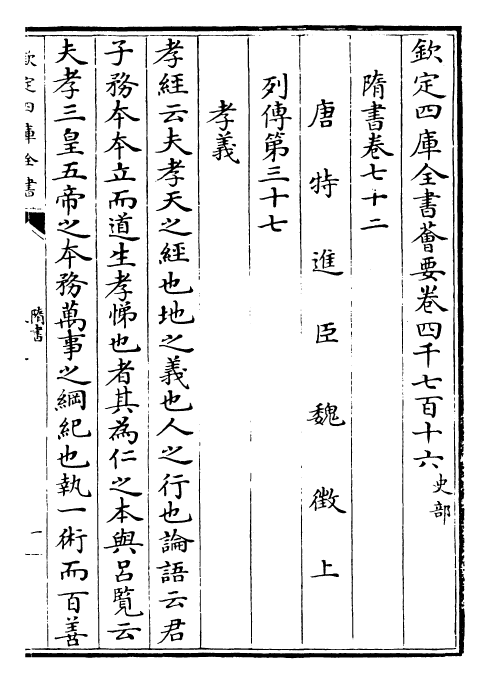 欽定四庫全書薈要卷四千七百十六史部
隋書卷七十二
唐特進臣魏徵上
列傳第三十七
孝義
孝經云夫孝天之經也地之義也人之行也論語云君
子務本本立而道生孝悌也者其為仁之本與呂覽云
夫孝三皇五帝之本務萬事之綱紀也執一術而百善
欽定四庫全書
隋書
一